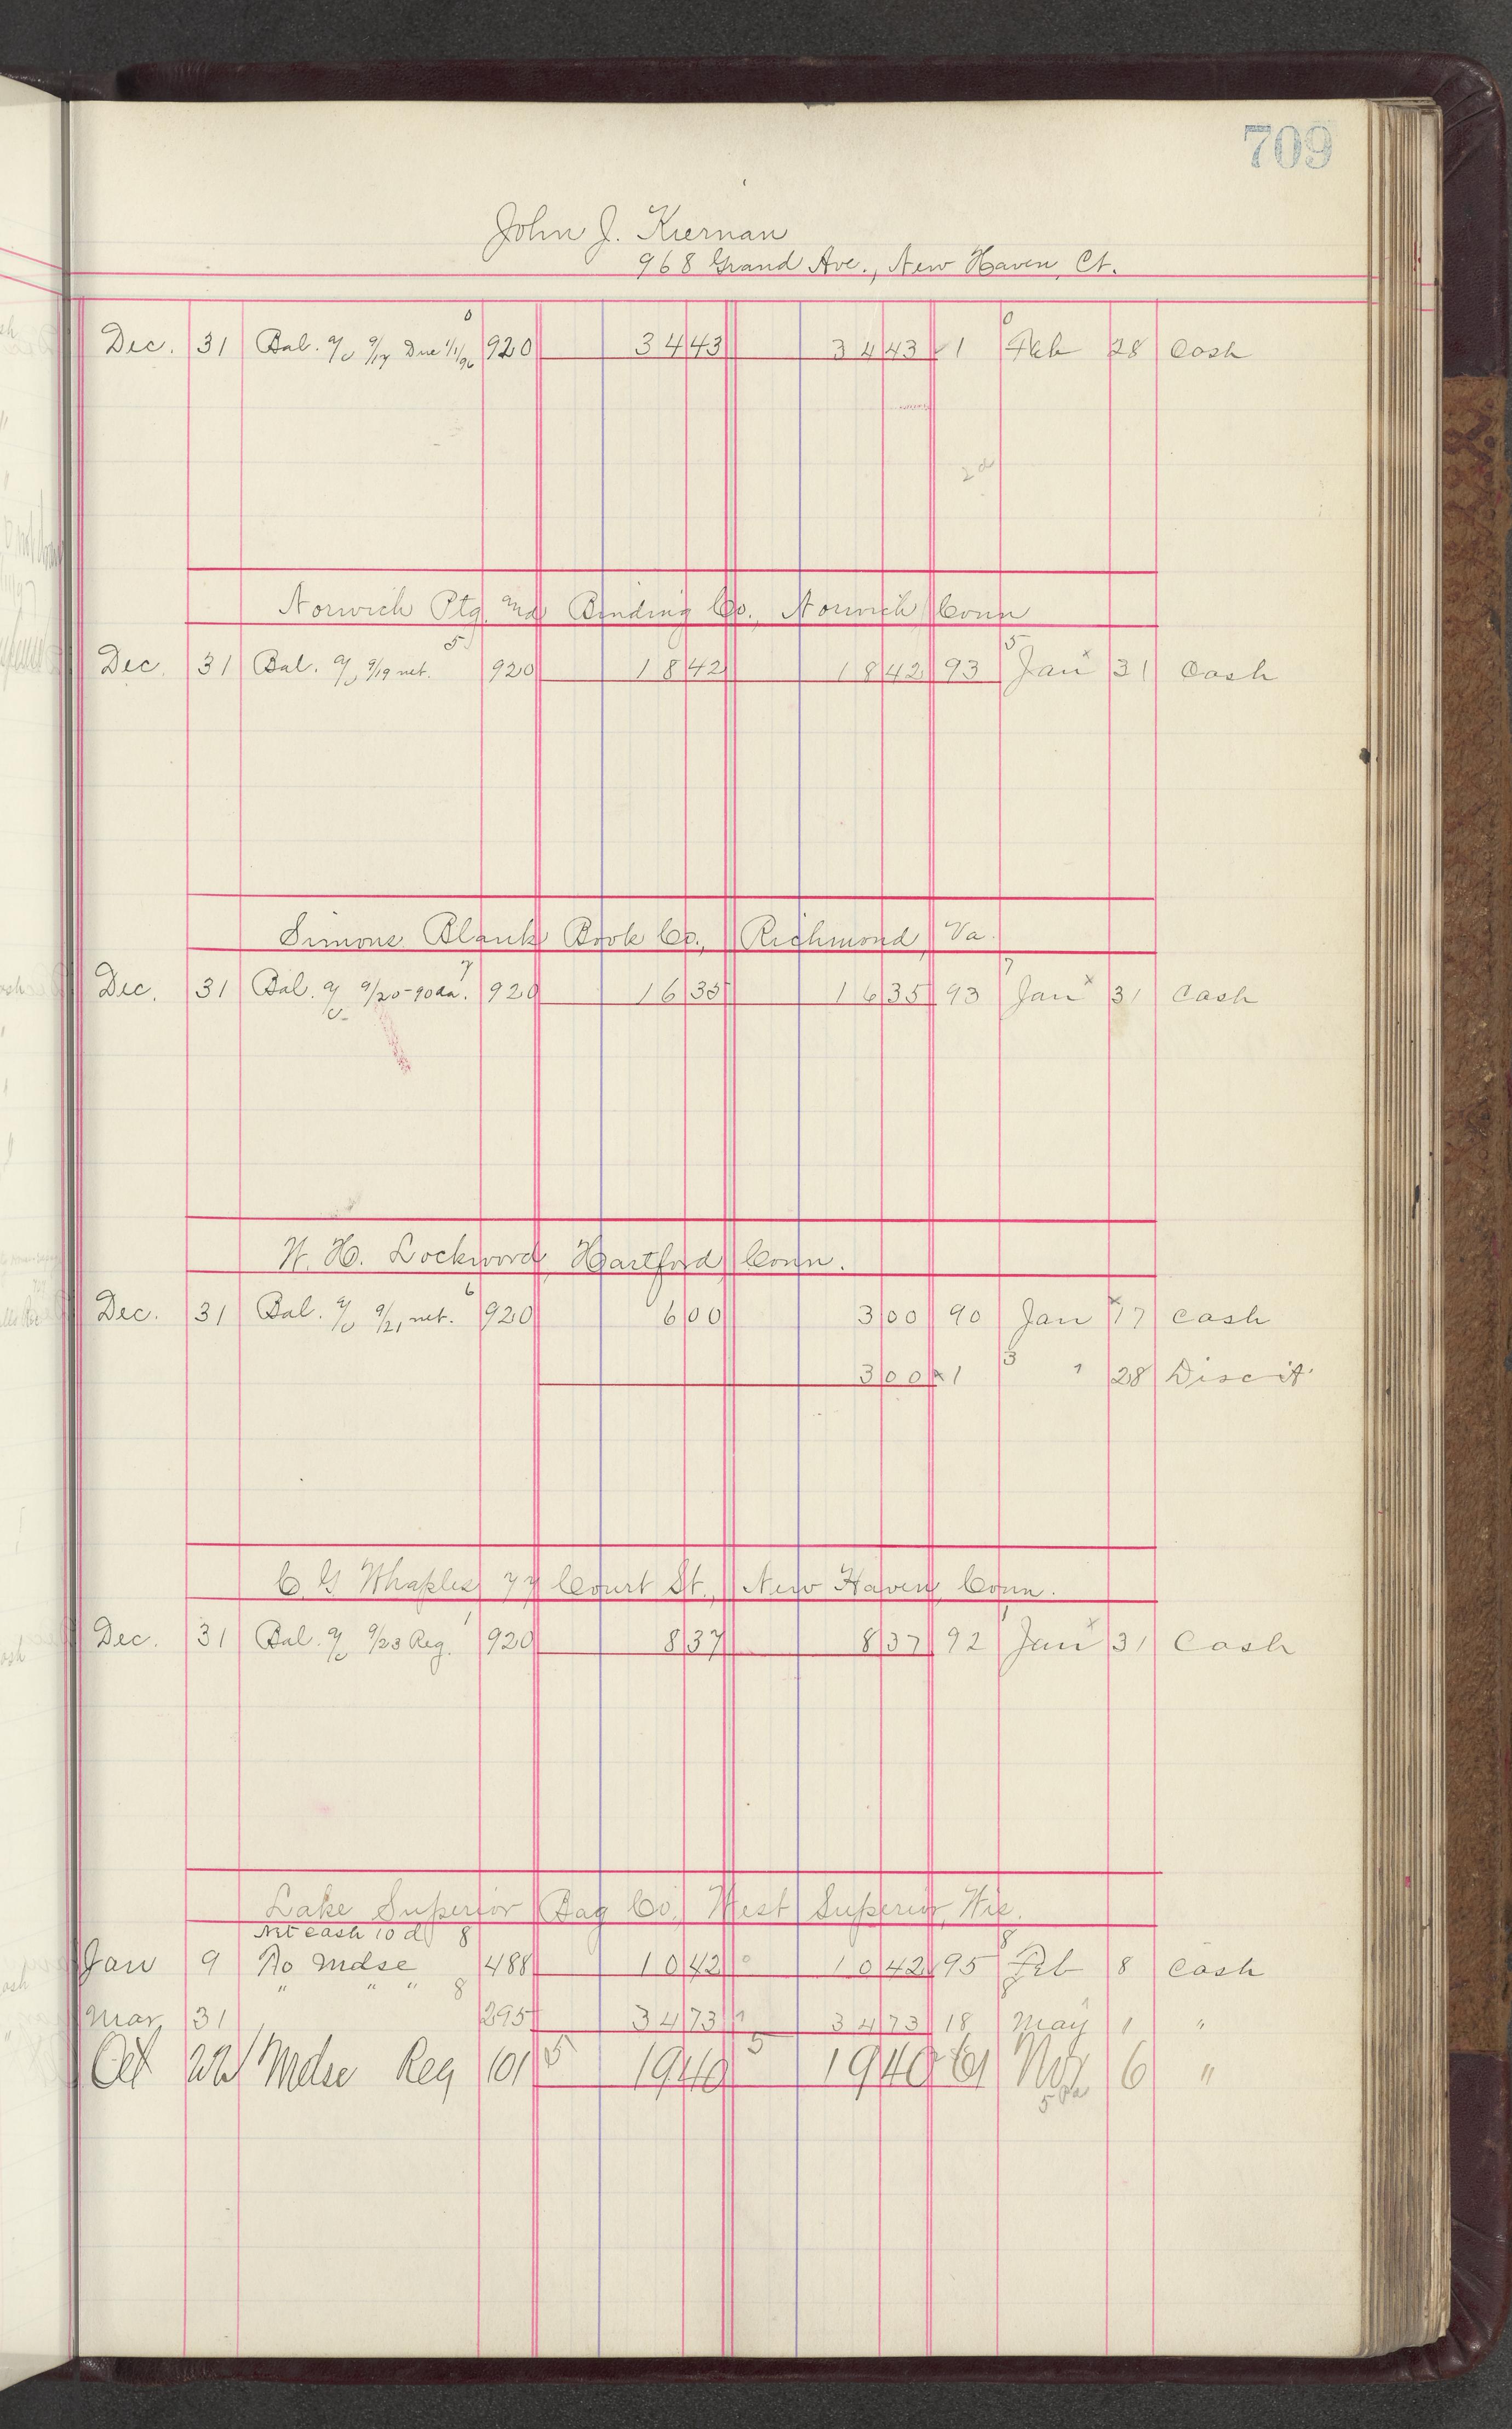 709
John J. Kiernan
968 Grand Ave., New Haven, Ct.
Dec. 31 Bal. a/c 9/17 Due 1/1/96 0 920 34 43 34 43 1 0 Feb 28 Cash
Norwich Ptg. and Binding Co., Norwich Conn
Dec. 31 Bal. a/c 9/19 net. 5 920 18 42 18 42 93 5 Jan x 31 Cash
Simons Blank Book Co., Richmond, Va.
Dec. 31 Bal. a/c 9/20-90da. 7 920 16 35 16 35 93 7 Jan x 31 Cash
W. H. Lockwood, Hartford Conn.
Dec. 31 Bal. a/c 9/21 net. 6 920 6 00 3 00 90 Jan x 17 Cash
3 00 x 1 3 " 28 Disc
C. G Whaples 77 Court St., New Haven, Conn.
Dec. 31 Bal. a/c 9/23 Reg. 1 920 8 37 8 37 92 1 Jan x 31 Cash
Lake Superior Bag Co., West Superior, Wis.
Net cash 10 d 8
Jan 9 To Mdse 488 10 42 10 42 95 8 Feb 8 Cash
Mar 31 " " " 8 295 34 73 34 73 18 8 May 1 "
Oct 22 Mdse Reg 101 5 19 40 5 19 40 61 Nov 6 "